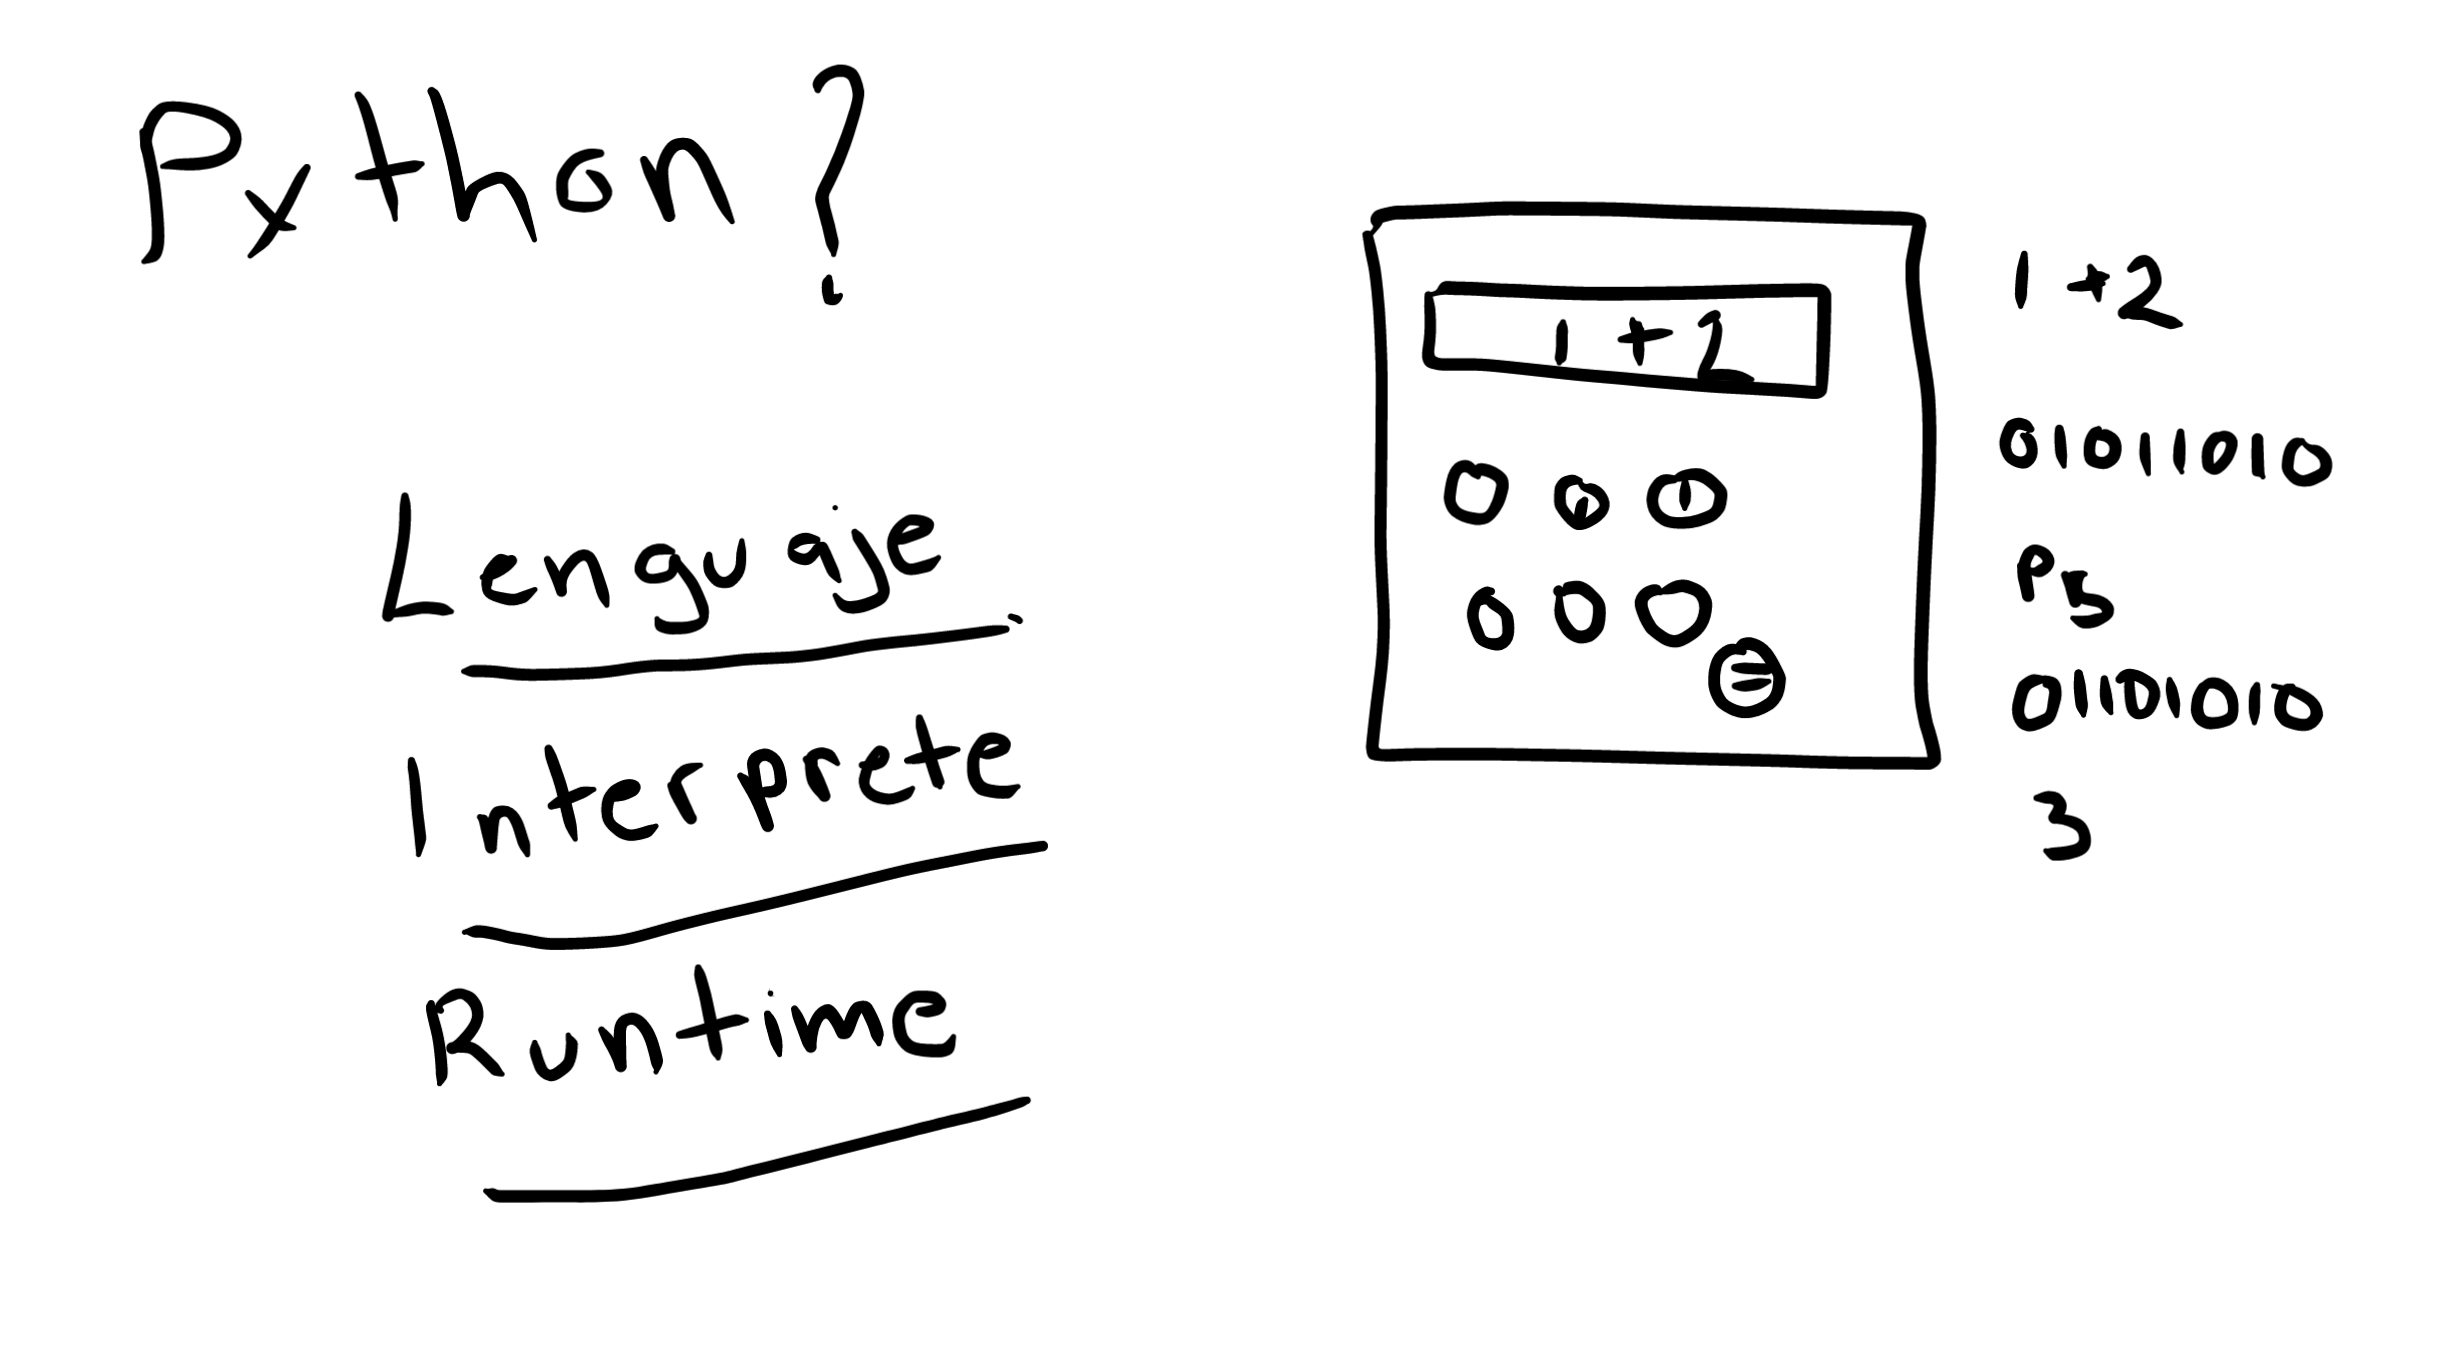 Python?
Lenguaje
Interprete
Runtime
1+2
1+2
01011010
01101010
3